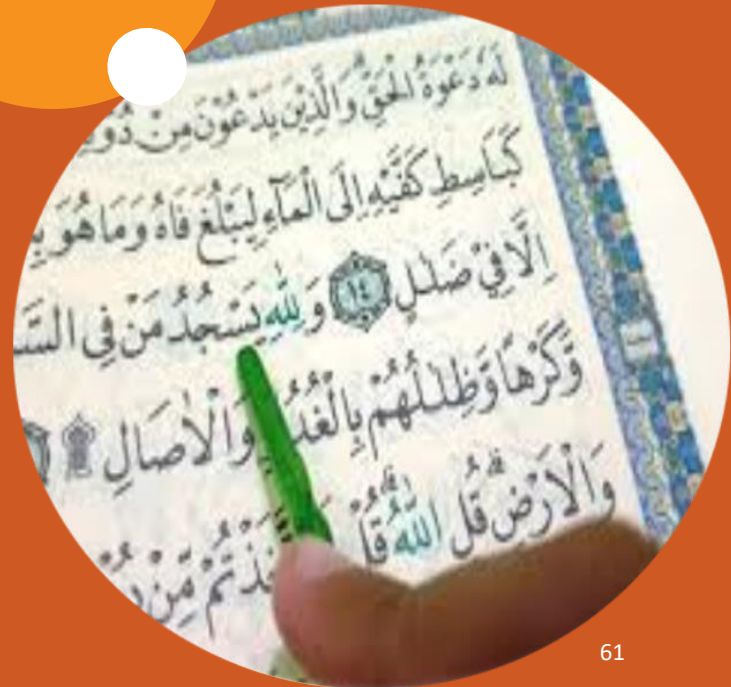 لَهٗ دَعْوَةُ الْحَقِّۗ وَالَّذِيْنَ يَدْعُوْنَ مِنْ
كَبَاسِطِ كَفَّيْهِ اِلَى الْمَاۤءِ لِيَبْلُغَ فَاهُ وَمَا هُوَ
اِلَّا فِيْ ضَلٰلٍ ١٤ وَلِلّٰهِ يَسْجُدُ مَنْ فِى
وَّكَرْهًا وَّظِلٰلُهُمْ وَالْاٰصَالِ ۩
وَالْاَرْضِۗ قُلِ اللّٰهُ ۗ قُلْ مِّنْ
61